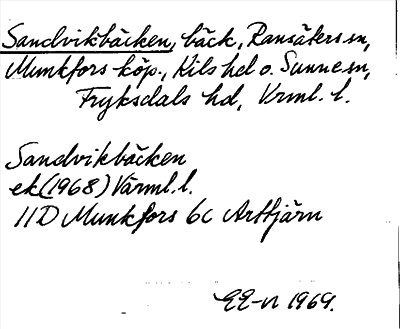 Sandvikbäcken, bäck, Ransäters sn,
Munkfors köp., Kils hd o. Sunne sn,
Fryksdals hd, Vrml. l.
Sandvikbäcken
ek (1968) Värml. l.
11D Munkfors 6c Arttjärn
EE-n 1969.